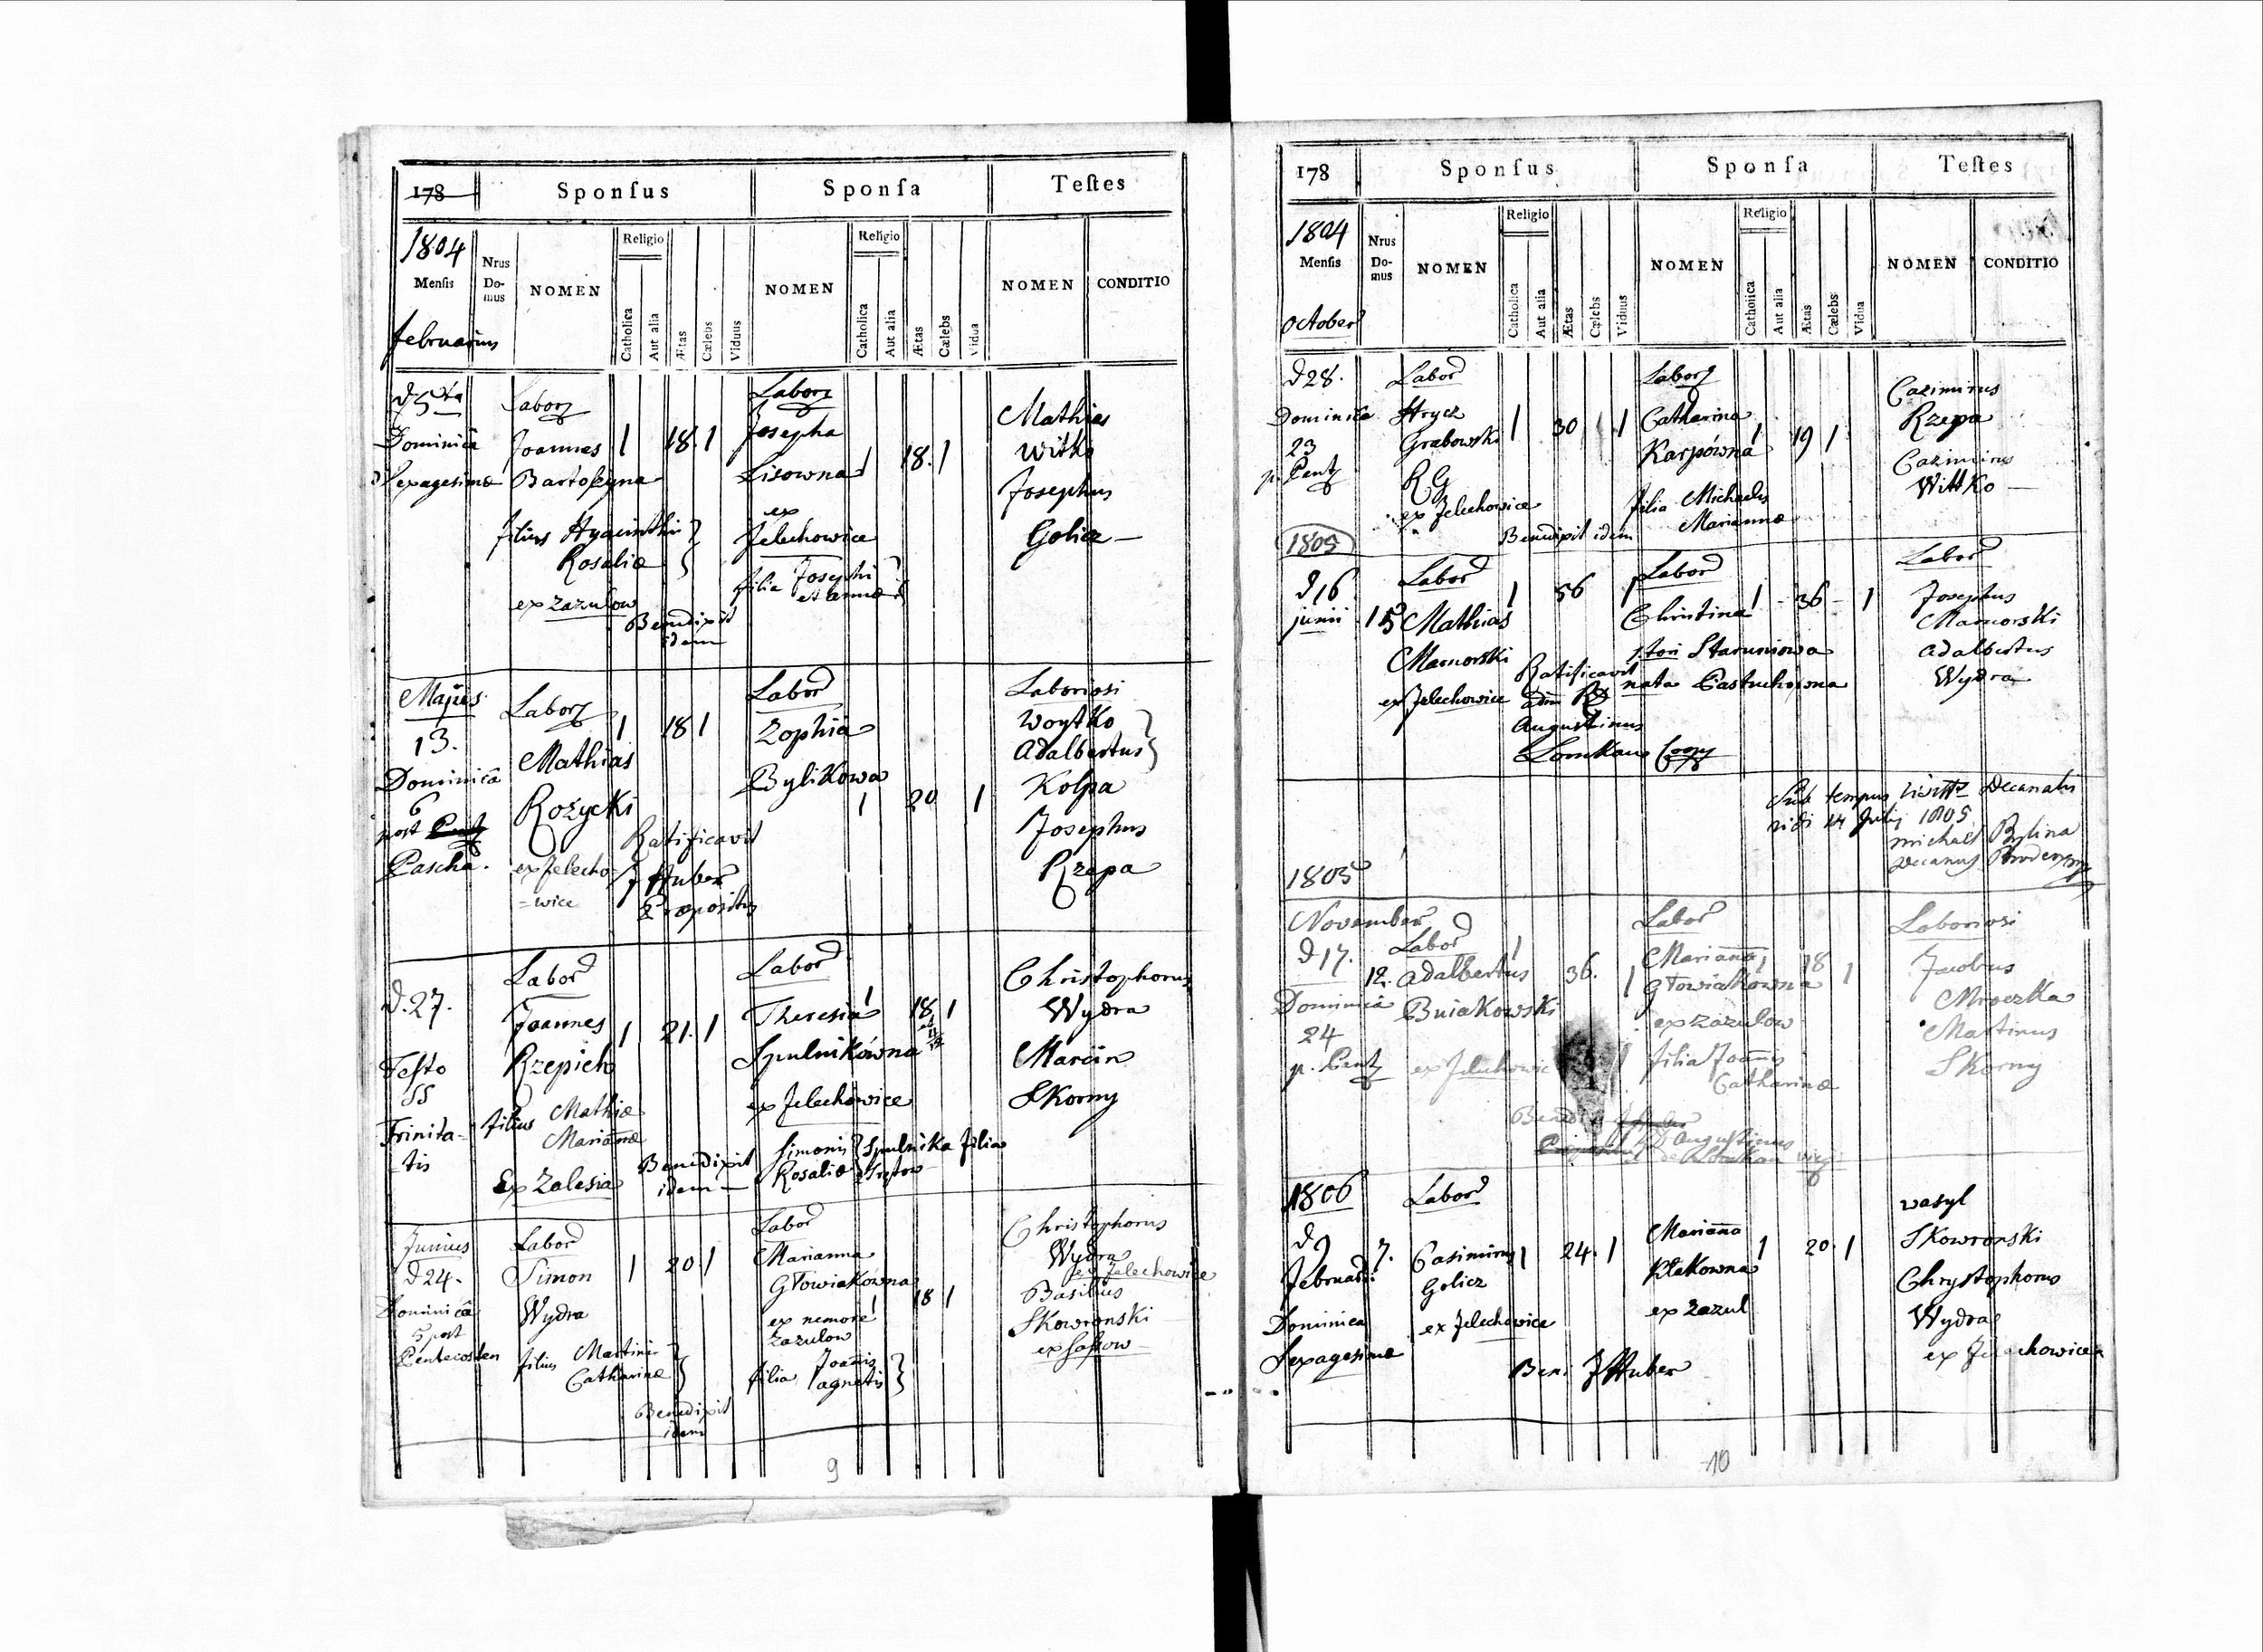 178 Sponſus Sponſa Teſtes
1804
Menſis
Nrus Do-mus
NOMEN
Religio
Catholica
Aut alia
Ætas
Cælebs
Viduus
NOMEN
Religio
Catholica
Aut alia
Ætas
Cælebs
Vidua
NOMEN CONDITIO
februarius
Dominicâ
Sexagesimæ
Joannes 1 18. 1
filius Hyacinthi
Rosaliæ
ex Zazulow
Benedixit
idem
Josepha
Lisowna 1 18. 1
ex
Jelechowice
filia Josephi
et annæ
Mathias
Witko
Josephus
Golicz —
Majus
13.
Dominicâ
6
post
Pascha.
Mathias 1 18 1
Rożycki
ex Jelecho
=wice
Ratificavit
J Huber
Præpositus
Labor
Zophia
Bylikowa 1 20 1
Laboriosi
Woytko
Adalbertus
Kolpa
Josephus
Rzepa
d. 27.
Festo
SS
Trinita-
-tis
Labor
Joannes 1 21. 1
Rzepich
filius Mathiæ
Mariannæ
Ex Zalesia
Benedixit
idem —
Labor
Theresia 1 18 1
Spulnikówna
ex Jelechowice
Simonis Spulnika filia
Rosaliæ
Christophorus
Wydra
Marcin
Skorny
Junius
d 24.
Dominicâ
5 post
Pentecosten
Labor
Simon 1 20 1
Wydra
filius Martini
Catharinæ
Benedixit
idem
Labor
Marianna
Głowiakówna 1 18 1
ex nemore
Zazulow
filia Joannis
agnetis
Christophorus
Wydra
ex Jelechowice
Basilius
Skowronski
ex Sassow
9
178 Sponſus Sponſa Teſtes
1804
Menſis
Nrus Do-mus
NOMEN
Religio
Catholica
Aut alia
Ætas
Cælebs
Viduus
NOMEN
Religio
Catholica
Aut alia
Ætas
Cælebs
Vidua
NOMEN CONDITIO
October
d 28.
Dominica
23
p. Pent
Labor
Hrycz
Grabowski 1 30 1
R G
ex Jelechowice
Benedixit idem
Catharina
Karpówna 1 19 1
filia Michaelis
Mariannæ
Cazimirus
Rzepa
Cazimirus
Wittko —
1805
d 16
junii
Labor
15 Mathias 1 56 1
Mamorski
ex Jelechowice
Ratificavit
Augustinus
Labor
Christina 1 36 1
Staruniowa
nata Pastuchowna
Labor
Josephus
Mamorski
Adalbertus
Wydra
Sub tempus Decanalis
vidi 14 Julij 1805
michael Bylina
Decanus
1805
November
d 17.
Dominicâ
24
p. Pent
Labor
12. Adalbertus 1 36. 1
Buiakowski
Labor
Marianna 1 18 1
Głowiakówna
ex Zazulow
filia Joannis
Catharinæ
Augustinus
Laboriosi
Jacobus
Mroczka
Martinus
Skorny
1806
d 9
Februarii
Dominica
Sexagesimæ
Labor
7. Casimirus 1 24. 1
Golicz
ex Jelechowice
Ben. J Huber
Marianna
Kłakowna 1 20. 1
ex Zazul
Wasyl
Skowronski
Chrystophorus
Wydra
10